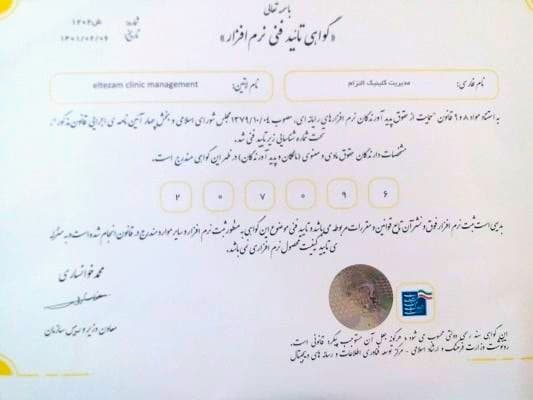 باسمه تعالی
«گواهی تائید فنی نرم افزار»
شماره:
تاریخ: ۱۴۰۱/۰۲/۰۶
نام فارسی: مدیریت کلینیک التزام
نام لاتین: eltezam clinic management
به استناد مواد ۸ و ۹ قانون "حمایت از حقوق پدید آورندگان نرم افزارهای رایانه ای، مصوب ۱۳۷۹/۱۰/۰۴ مجلس شورای اسلامی و بخش چهار آئین نامه ی اجرایی قانون مذکور"
تحت شماره شناسایی زیر تایید فنی شد.
مشخصات دارندگان حقوق مادی و معنوی (مالکان و پدید آورندگان) در ظهر این گواهی مندرج است.
۲ ۰ ۷ ۰ ۹ ۶
بدیهی است ثبت نرم افزار فوق و نشر آن تابع قوانین و مقررات مربوطه می باشد و تاییدیه فنی موضوع این گواهی به منظور ثبت نرم افزار و سایر موارد مندرج در قانون انجام شده است و به منزله
ی تایید کیفیت محصول نرم افزاری نمی باشد.
محمد خوانساری
معاون وزیر و رییس سازمان
این گواهی سند رسمی دولتی محسوب می شود و هرگونه جعل آن مستوجب پیگرد قانونی است.
رونوشت: وزارت فرهنگ و ارشاد اسلامی - مرکز توسعه فناوری اطلاعات و رسانه های دیجیتال